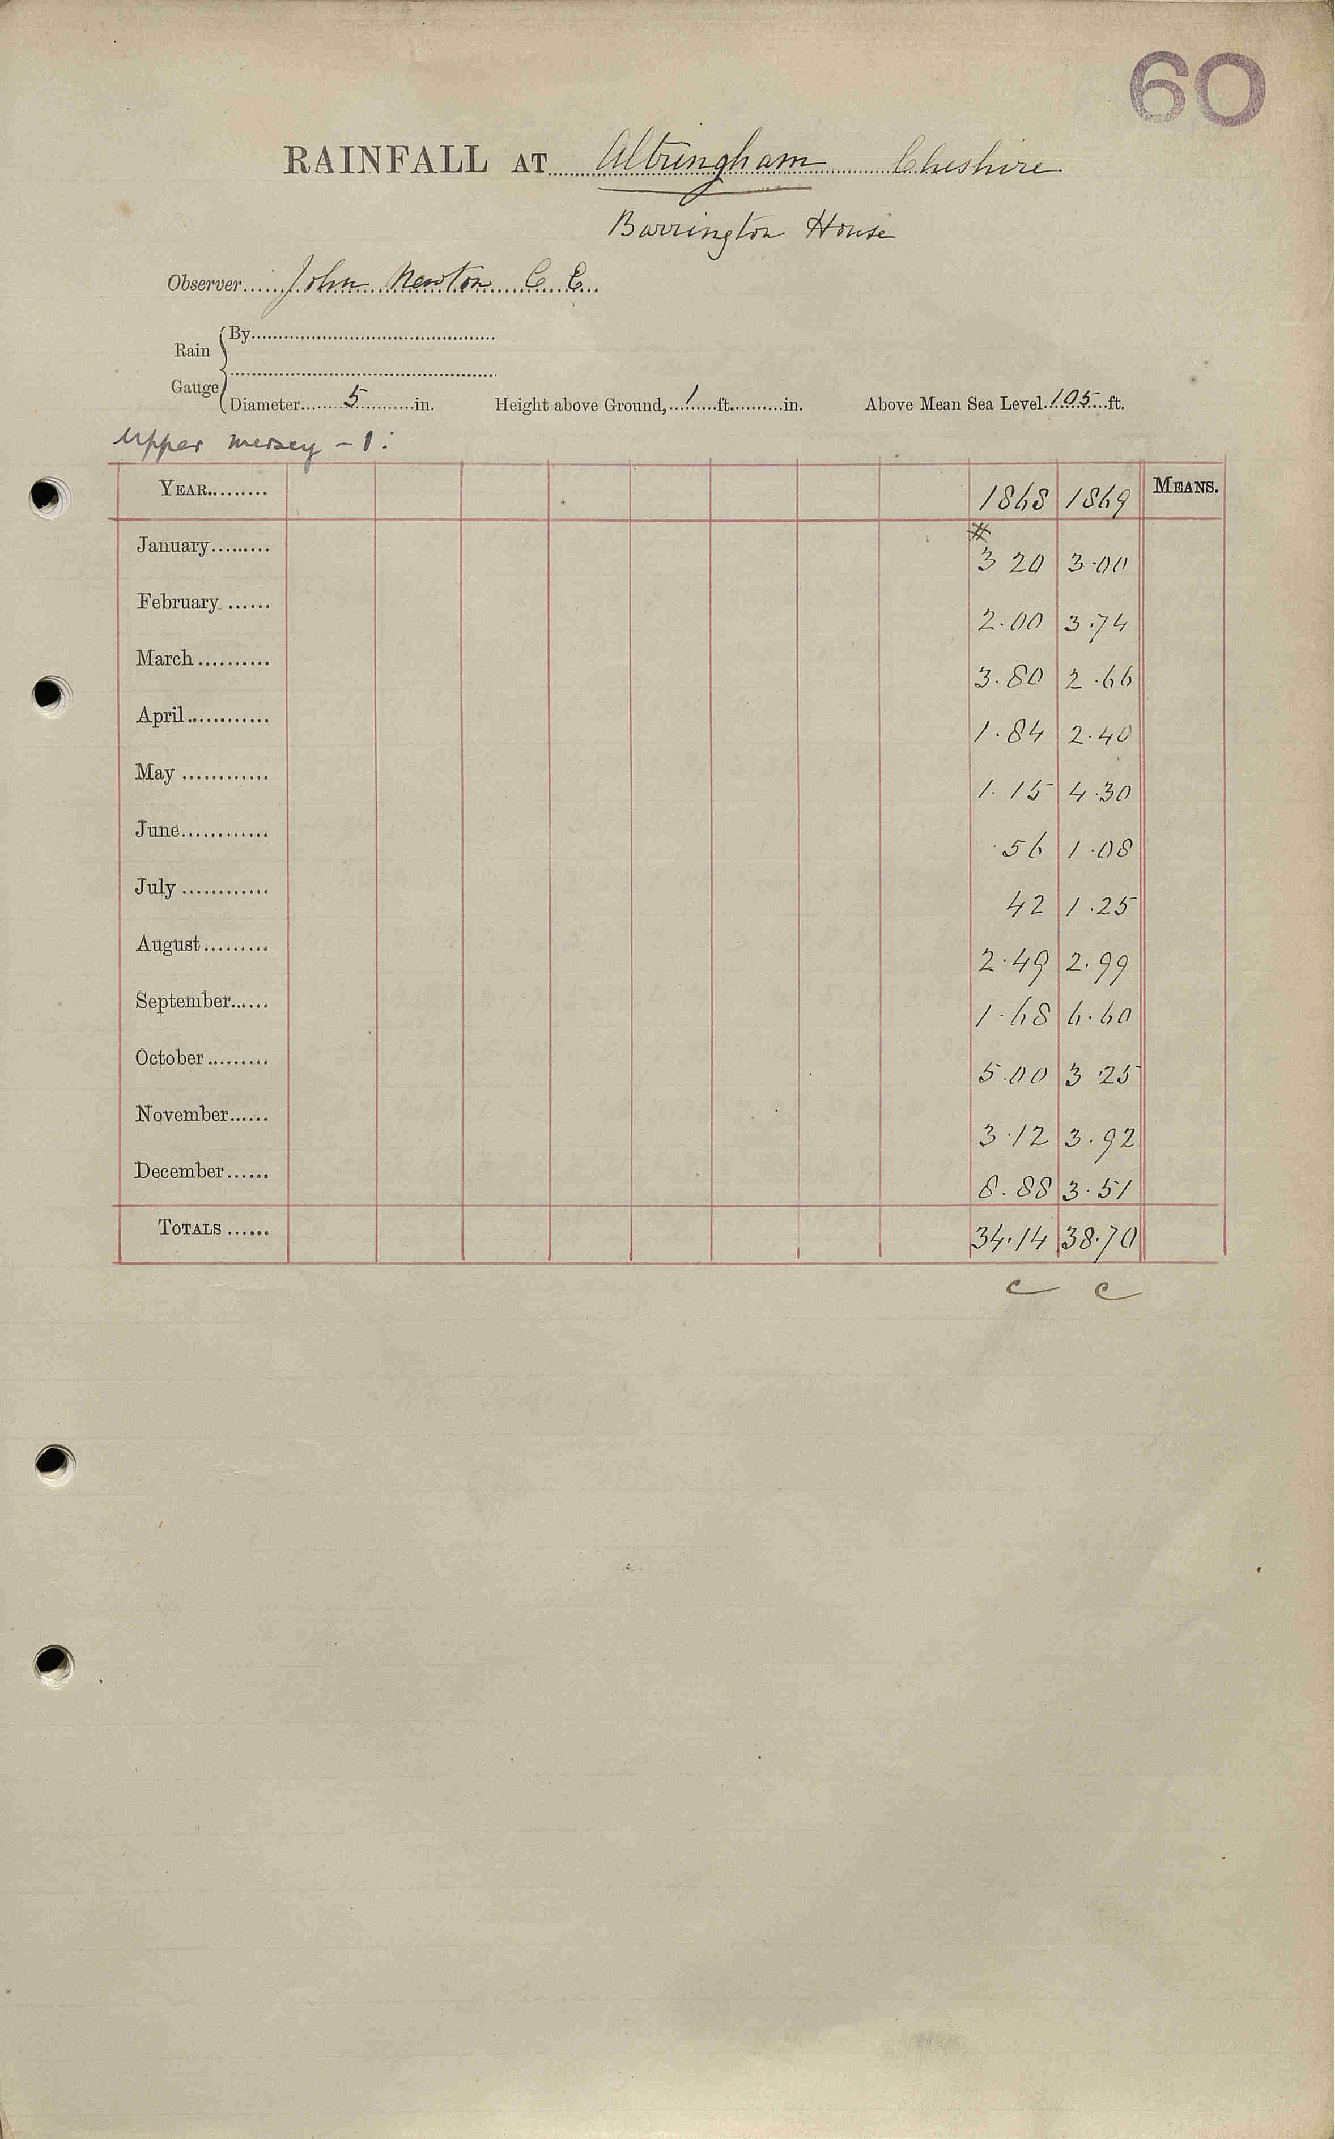 60
RAINFALL AT Altringham Cheshire
Barrington House
Observer John Newton C. E.
By
Rain
Gauge
Diameter 5 in. Height above Ground, 1 ft. in. Above Mean Sea Level 105 ft.
Upper Mersey - 1:
YEAR 1868 1869 MEANS.
#
January 3 20 3.00
February 2.00 3.74
March 3.80 2.66
April 1.84 2.40
May 1.15 4.30
June .56 1.08
July 42 1.25
August 2.49 2.99
September 1.68 6.60
October 5.00 3 25
November 3.12 3.92
December 8.88 3.51
TOTALS 34.14 38.70
c c